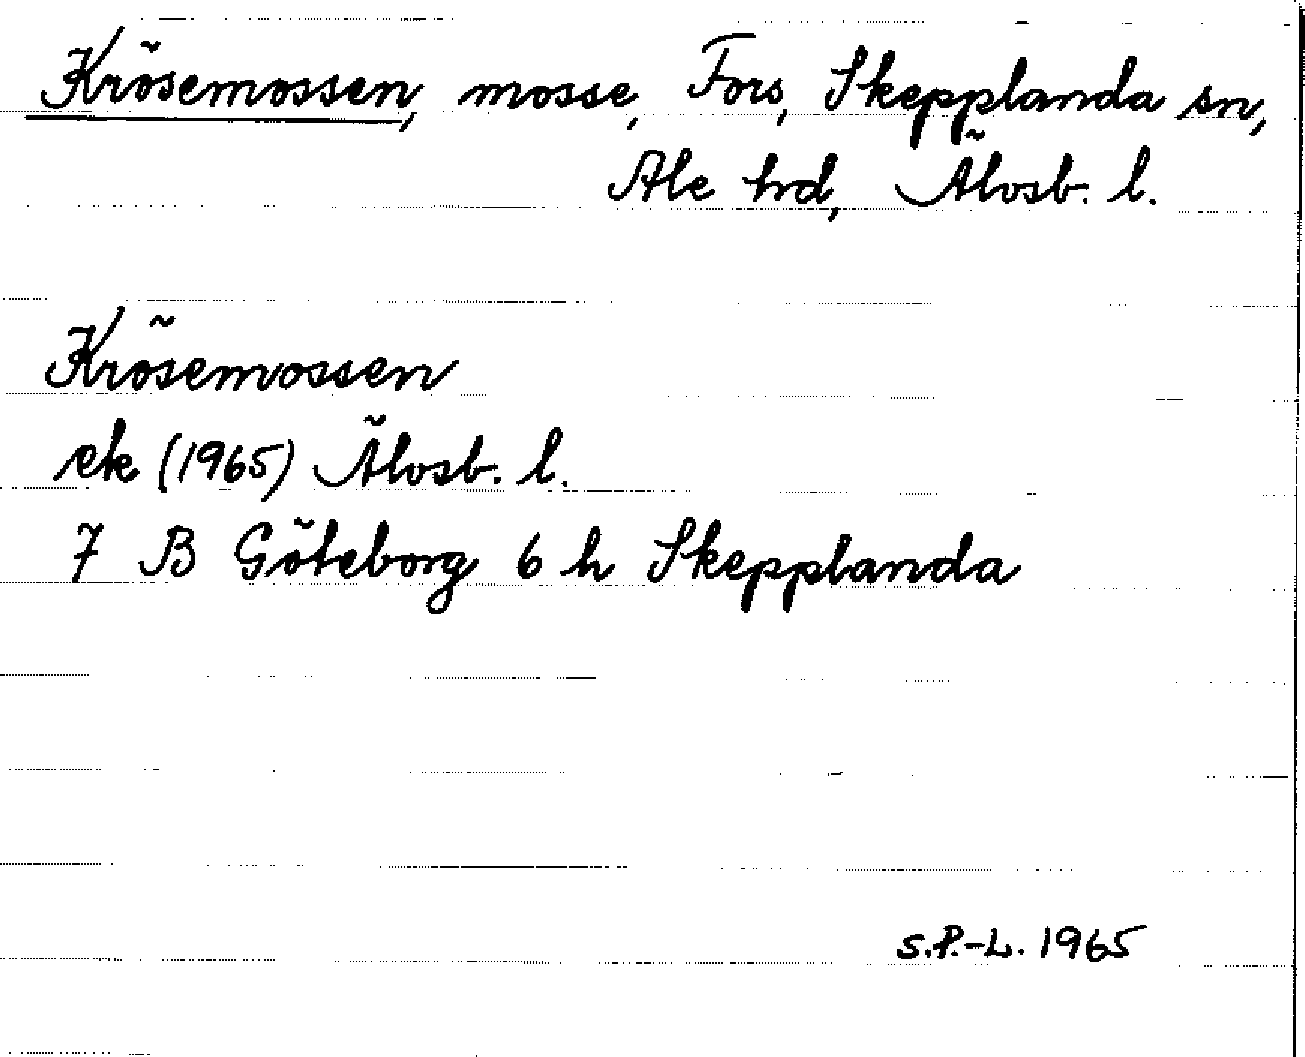 Krösemossen, mosse, Fors, Skepplanda sn,
Ale hrd, Älvsb. l.
Krösemossen
ek (1965) Älvsb. l.
7 B Göteborg 6 h Skepplanda
S.P.-L. 1965